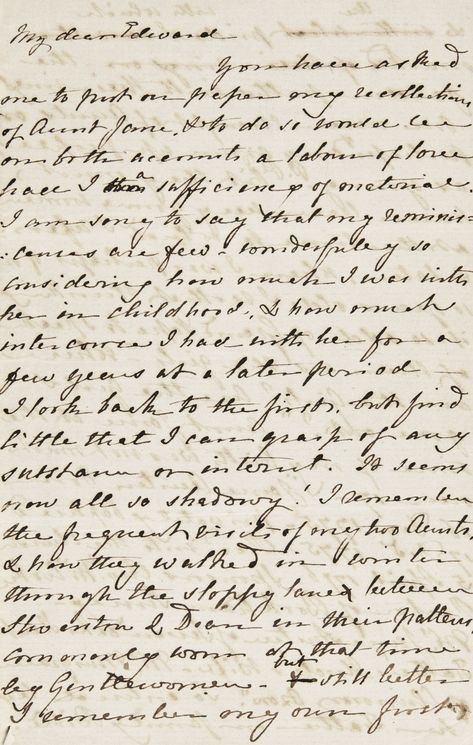 My dear Edward
You have asked
me to put on paper my recollections
of Aunt Jane, & to do so would be
on both accounts a labour of love
had I a sufficiency of material.
I am sorry to say that my reminis-
:cences are few - wonderfully so
considering how much I was with
her in childhood, & how much
intercourse I had with her for a
few years at a later period -
I look back to the first, but find
little that I can grasp of any
substance or interest. It seems
now all so shadowy! I remember
the frequent visits of my two Aunts,
& how they walked in winter
through the sloppy lane between
Steventon & Dean in their pattens
commonly worn at that time
by Gentlewomen - but still better
I remember my own first